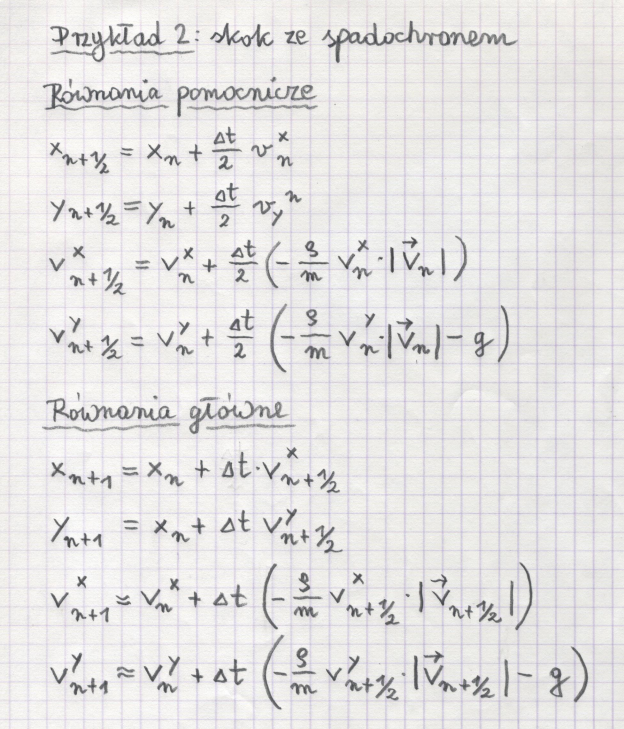 Przykład 2: skok ze spadochronem
Równania pomocnicze
x_{n+1/2} = x_n + Δt/2 v_n^x
y_{n+1/2} = y_n + Δt/2 v_y^n
v_{n+1/2}^x = v_n^x + Δt/2 (- ρ/m v_n^x · |v⃗_n|)
v_{n+1/2}^y = v_n^y + Δt/2 (- ρ/m v_n^y · |v⃗_n| - g)
Równania główne
x_{n+1} = x_n + Δt · v_{n+1/2}^x
y_{n+1} = x_n + Δt v_{n+1/2}^y
v_{n+1}^x ≈ v_n^x + Δt (- ρ/m v_{n+1/2}^x · |v⃗_{n+1/2}|)
v_{n+1}^y ≈ v_n^y + Δt (- ρ/m v_{n+1/2}^y · |v⃗_{n+1/2}| - g)